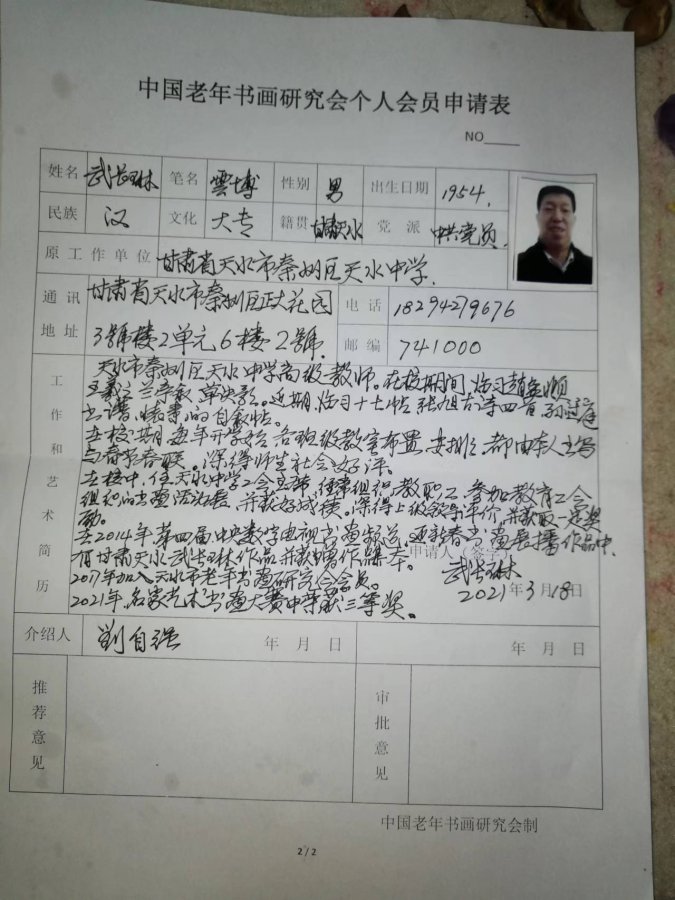 中国老年书画研究会个人会员申请表
NO
姓名 武长林 笔名 雲博 性别 男 出生日期 1954.
民族 汉 文化 大专 籍贯 甘肃天水 党派 中共党员.
原工作单位 甘肃省天水市秦州区天水中学.
通讯 甘肃省天水市秦州区正大花园 电话 18294279676
地址 3號楼2单元6楼2號. 邮编 741000
工作和艺术简历
天水市秦州区天水中学高级教师。在校期间临习趙孟頫
王羲之兰亭叙 草决歌。近期临习十七帖 张旭古诗四首 孙过庭
书谱、怀素的自叙帖。
在校期每年开学给各班级教室布置、安排、都由本人书写
与春节春联。深得师生社会好评。
在校中,任天水中学工会主席,经常组织教职工参加教育工会
组织的书画活动展,并获好成绩。深得上级领导评价,并获取一定奖
励。
在2014年第四届中央数字电视书画频道,迎新春书画展播作品中,
有甘肃天水武长林作品并获赠作品集一本。
申请人(签字)
2017年加入天水市老年书画研究会会员。 武长林
2021年,名家艺术书画大赛中荣获三等奖。 2021年3月18日
介绍人 劉自强 年 月 日 年 月 日
推荐意见 审批意见
中国老年书画研究会制
2 / 2